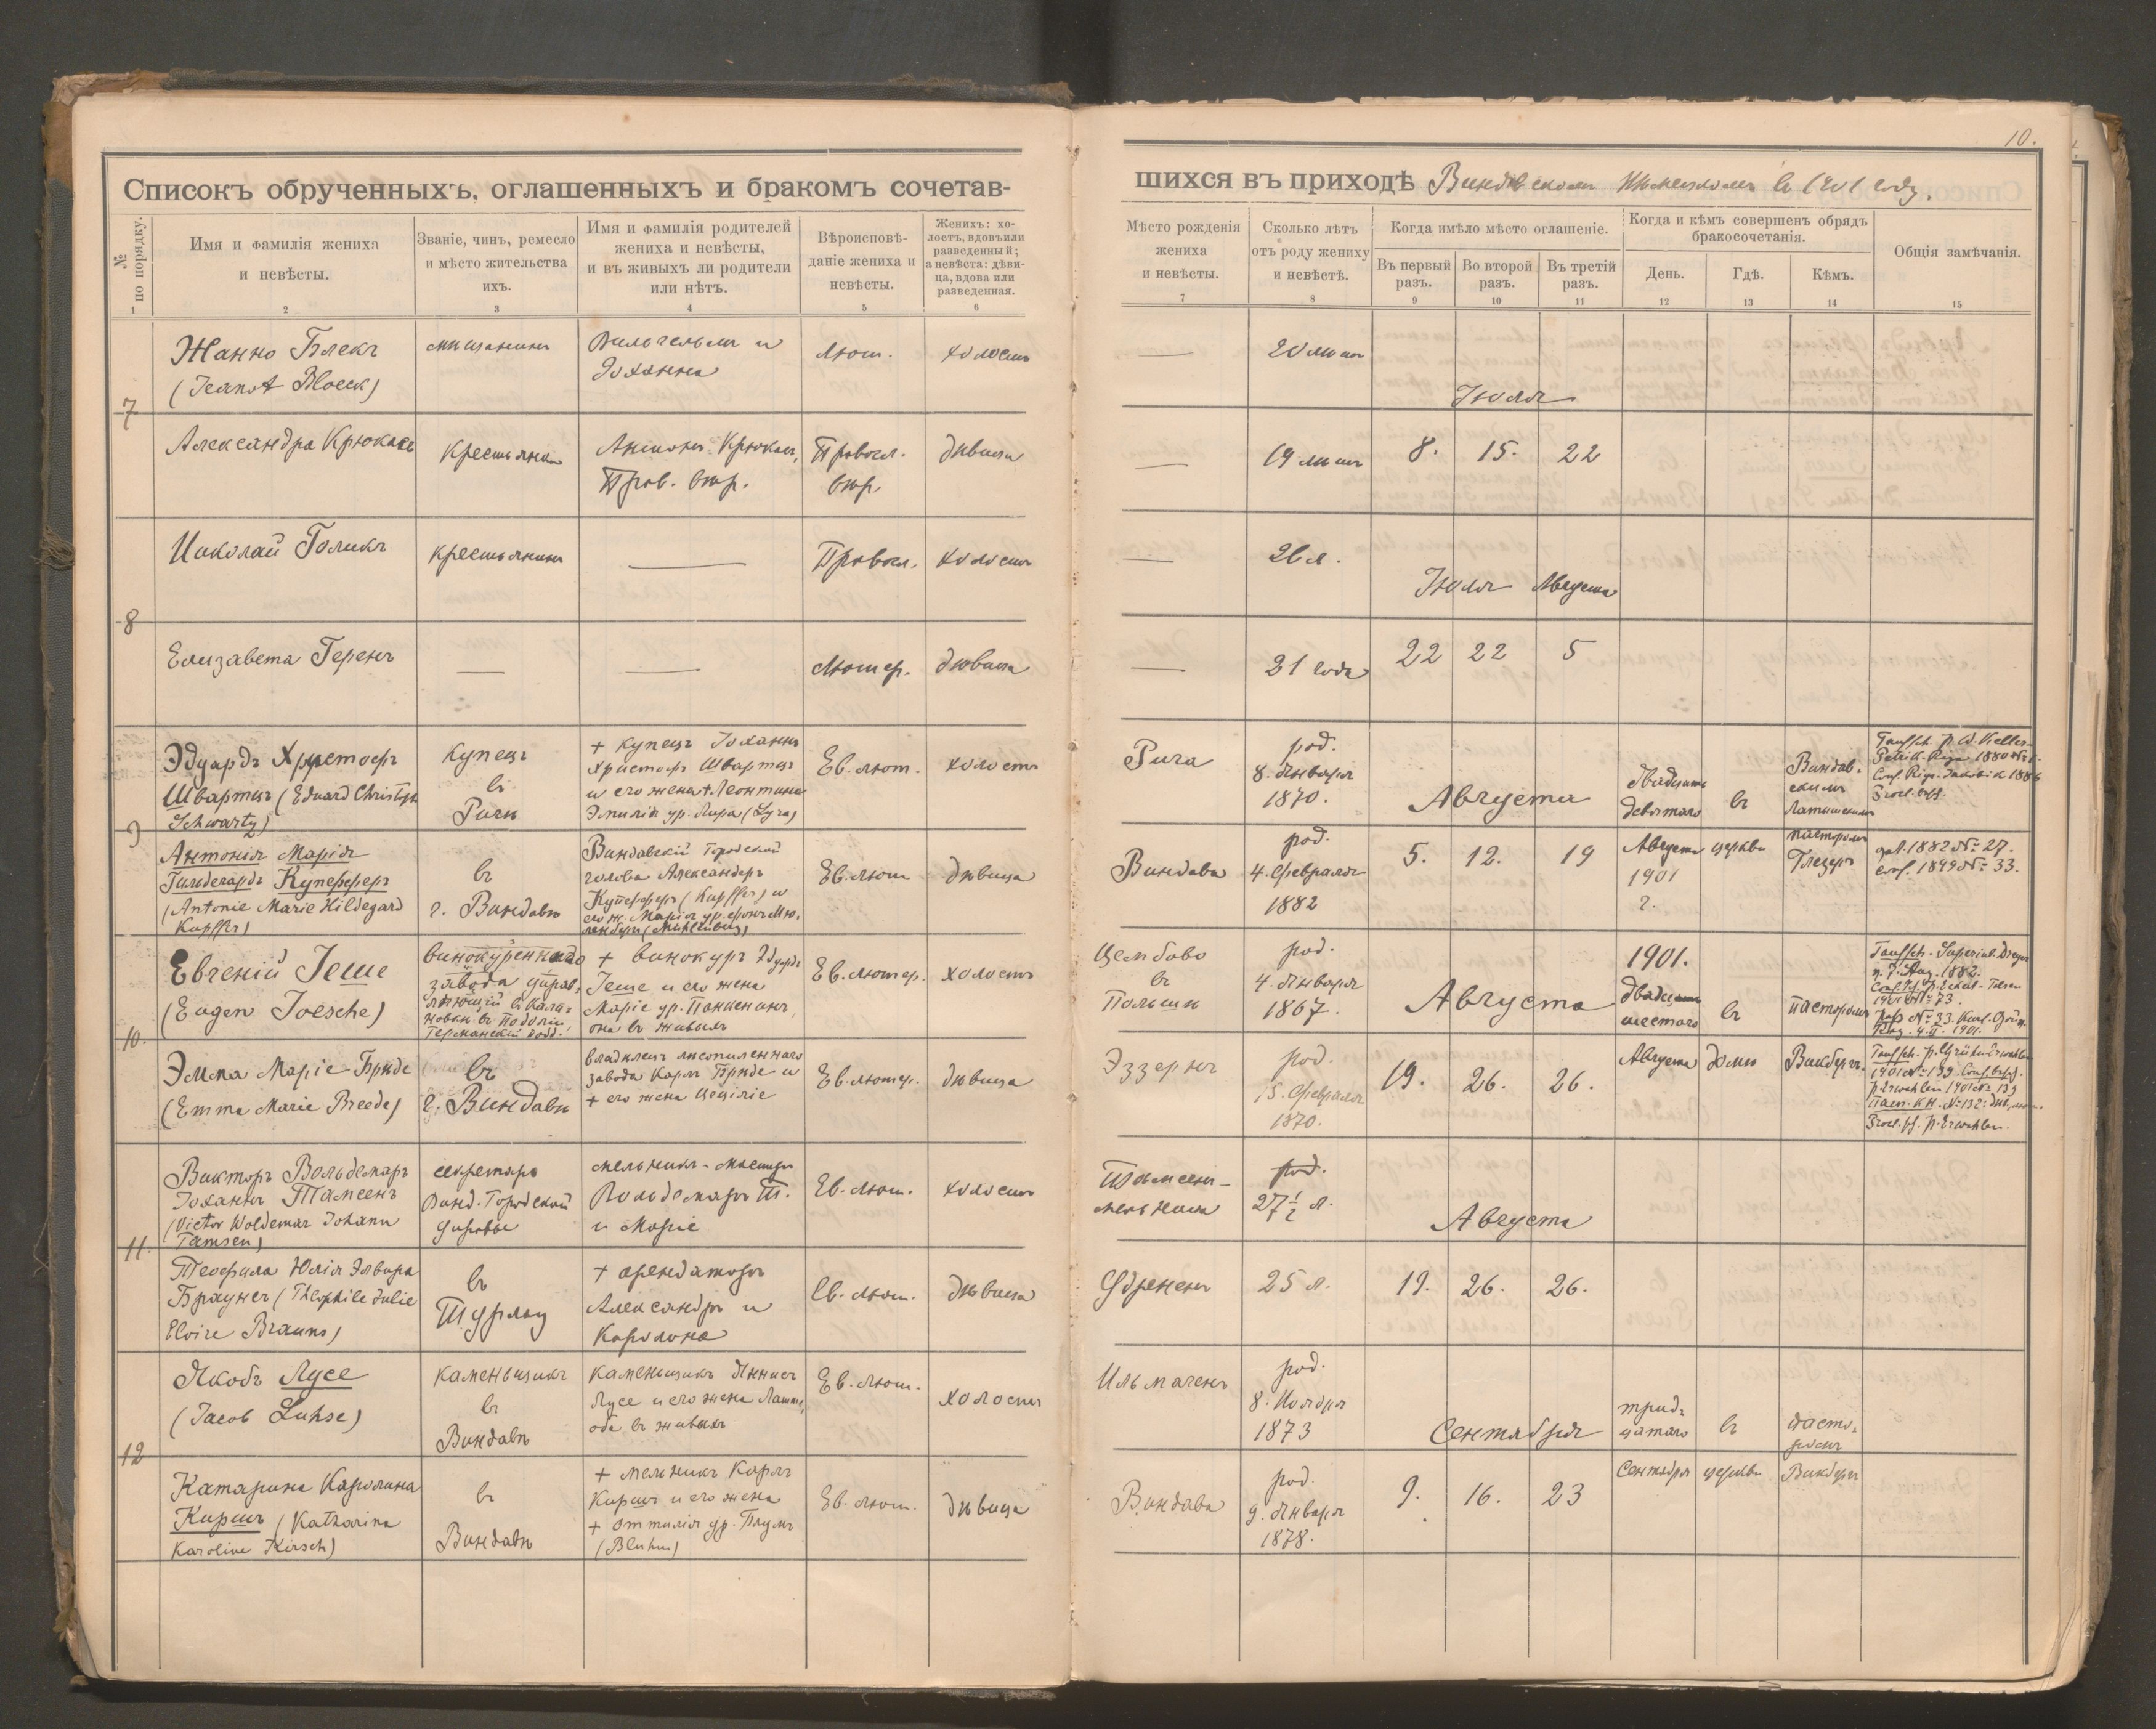 10.
Списокъ обрученныхъ, оглашенныхъ и бракомъ сочетав-
шихся въ приходѣ Виндавскомъ Нѣмецкомъ въ 1901 году.
№ по порядку.
Имя и фамилія жениха
и невѣсты.
Званіе, чинъ, ремесло
и мѣсто жительства
ихъ.
Имя и фамилія родителей
жениха и невѣсты,
и въ живыхъ ли родители
или нѣтъ.
Вѣроисповѣ-
даніе жениха и
невѣсты.
Женихъ: хо-
лостъ, вдовъ или
разведенный;
а невѣста: дѣви-
ца, вдова или
разведенная.
Мѣсто рожденія
жениха
и невѣсты.
Сколько лѣтъ
отъ роду жениху
и невѣстѣ.
Когда имѣло мѣсто оглашеніе.
Въ первый
разъ.
Во второй
разъ.
Въ третій
разъ.
Когда и кѣмъ совершенъ обрядъ
бракосочетанія.
День.
Гдѣ.
Кѣмъ.
Общія замѣчанія.
1 2 3 4 5 6 7 8 9 10 11 12 13 14 15
7
Жанно Блекъ
(Jeanot Bloeck)
мѣщанинъ
Вильгельмъ и
Іоханна
Лют.
холостъ
—
20 лѣтъ
Іюля
Александра Крюкасъ
крестьянка
Антонъ Крюкасъ,
Прав. вѣр.
Правосл.
вѣр.
дѣвица
—
19 лѣтъ
8. 15. 22
8
Николай Голикъ
крестьянинъ
—
Правосл.
холостъ
—
26 л.
Іюля Августа
Елизавета Геренъ
—
—
Лютер.
дѣвица
—
21 года
22 22 5
9
Эдуардъ Христофъ
Шварцъ (Eduard Christoph
Schwartz)
купецъ
въ
Ригѣ
+ купецъ Іоханнъ
Христофъ Шварцъ
и его жена + Леонтина
Эмилія ур. Лира (Lyra)
Ев. лют.
холостъ
Рига
род.
8. Января
1870.
Августа
двадцать
девятаго
въ
Виндав-
скимъ
Латышскимъ
Антонія Марія
Гильдегардъ Купфферъ
(Antonie Marie Hildegard
Kupffer)
въ
г. Виндавѣ
Виндавскій Городской
голова Александръ
Купфферъ (Kupffer) и
его ж. Марія ур. фонъ Мю-
ленбургъ
Ев. лют.
дѣвица
Виндава
род.
4. Февраля
1882
5. 12. 19
Августа
1901
г.
церкви
пасторомъ
Глезеръ
gat. 1882 № 27.
conf. 1899 № 33.
10.
Евгеній Іеше
(Eugen Joesche)
винокуреннаго
завода управ-
ляющій в Кала-
новки въ Подоліи,
Германскій подд.
+ винокуръ Эдуардъ
Іеше и его жена
Маріе ур. Панненингъ,
она въ живыхъ
Ев. лютер.
холостъ
Цембово
въ
Польши
род.
4. Января
1867.
Августа
1901.
двадцать
шестаго
въ
пасторомъ
Эмма Маріе Бреде
(Emma Marie Breede)
въ
г. Виндавѣ
владѣлецъ лѣсопиленнаго
завода Карлъ Бреде и
+ его жена Цециліе
Ев. лютер.
дѣвица
Эззернъ
род.
15. Февраля
1870.
19. 26. 26.
Августа
домѣ
Викбергъ.
11.
Викторъ Вольдемаръ
Іоханнъ Тамсенъ
(Victor Woldemar Johann
Tamsen)
секретарь
Винд. Городской
Управы
мельникъ-мастеръ
Вольдемаръ Т.
и Маріе
Ев. лют.
холостъ
Тамсен-
мельница
род.
27 1/2 л.
Августа
Теофила Юлія Эльвира
Браунсъ (Theophile Julie
Elvire Brauns)
въ
Шурлау
+ арендаторъ
Александръ и
Каролина
Ев. лют.
дѣвица
25 л.
19. 26. 26.
12
Якобъ Лусе
(Jacob Luhse)
каменьщикъ
въ
Виндавѣ
каменьщикъ Яннисъ
Лусе и его жена
оба въ живыхъ
Ев. лют.
холостъ
Ильмагенъ
род.
8. Ноября
1873
Сентября
трид-
цатаго
въ
пасто-
ромъ
Катарина Каролина
Киршъ (Katharina
Karoline Kirsch)
въ
Виндавѣ
+ мельникъ Карлъ
Киршъ и его жена
+ Оттилія ур. Блумъ
(Bluhm)
Ев. лют.
дѣвица
Виндава
род.
9. Января
1878.
9. 16. 23
Сентября
церкви
Викбергъ